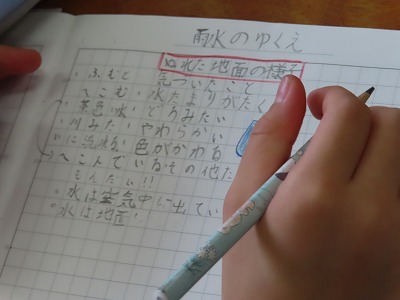 雨水のゆくえ
ぬれた地面の様子
・ふむと 気づいたこと
へこむ・水たまりがたく
・茶色い水・どろみたい
・川みたい・やわらかい
色がかわる
へこんでいる その他た
もんだい!!
・水は空気中に出てい
・水は地面